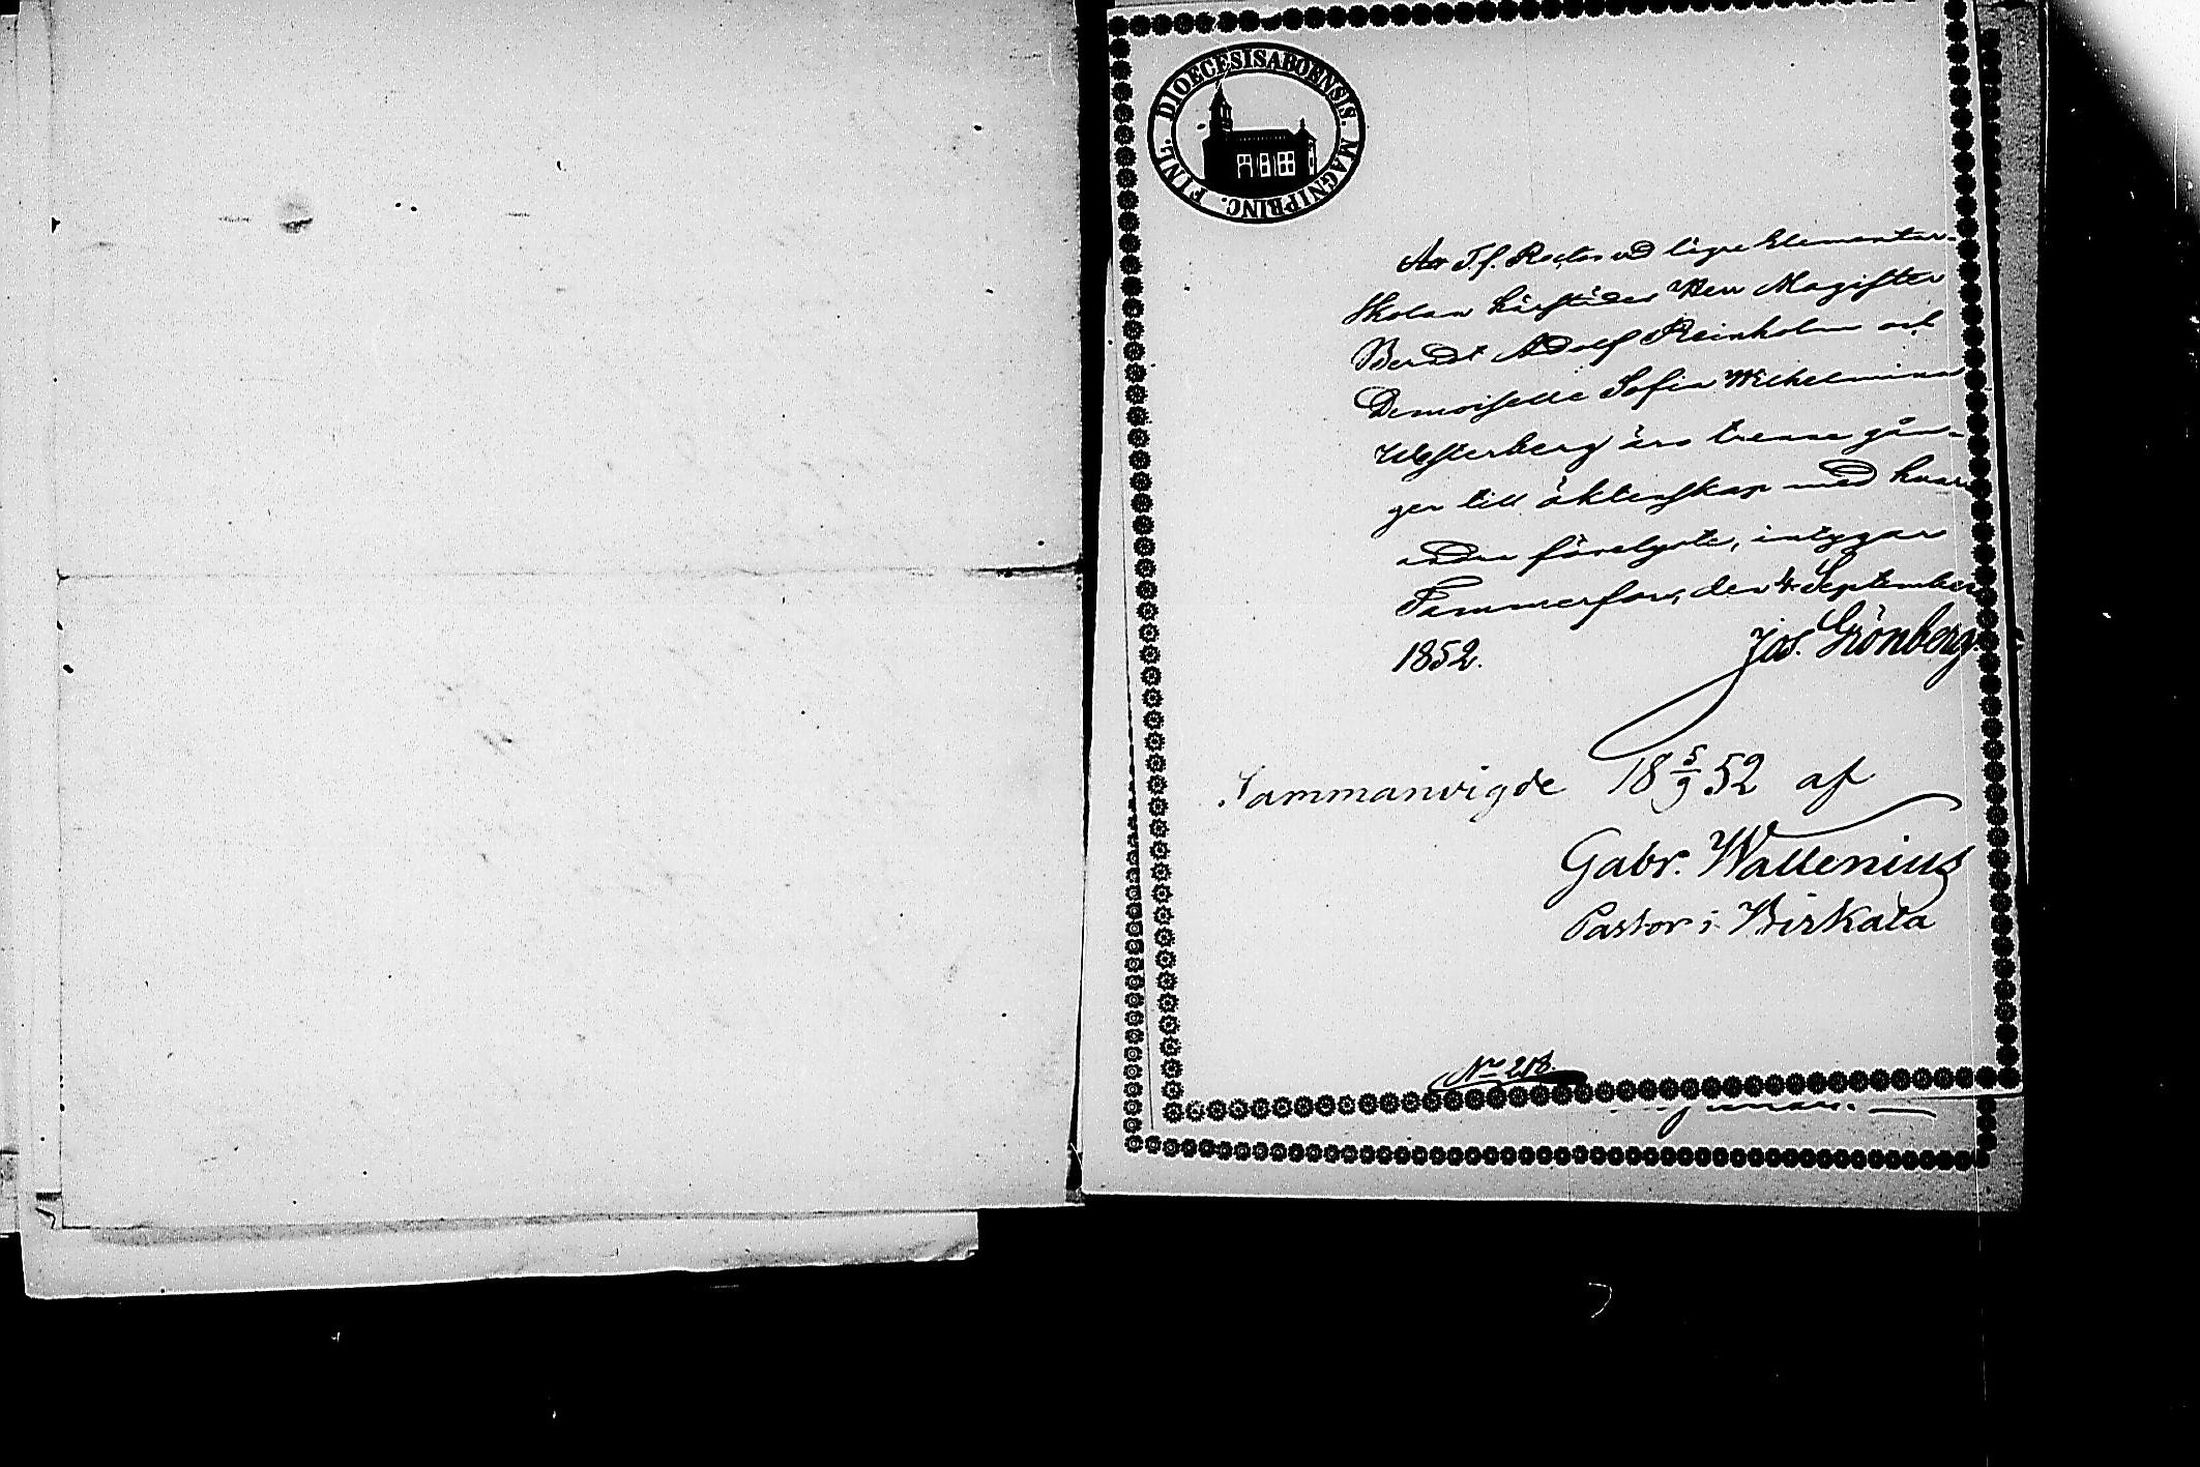 DIOECESIS ABOENSIS. MAGNI PRINC. FINL.
Att T. f. Rector vid lägre Elementar-
Skolan härstädes Herr Magister
Berndt Adolf Reinholm och
Demoiselle Sofia Wilhelmina
Westerberg äro trenne gån-
ger till äktenskap med hvar
andra förelyste, intygar
Tammerfors, den 4 September
1852. Jos. Grönberg.
Sammanvigde 18 5/9 52 af
Gabr. Wallenius
Pastor i Birkala
No 218.